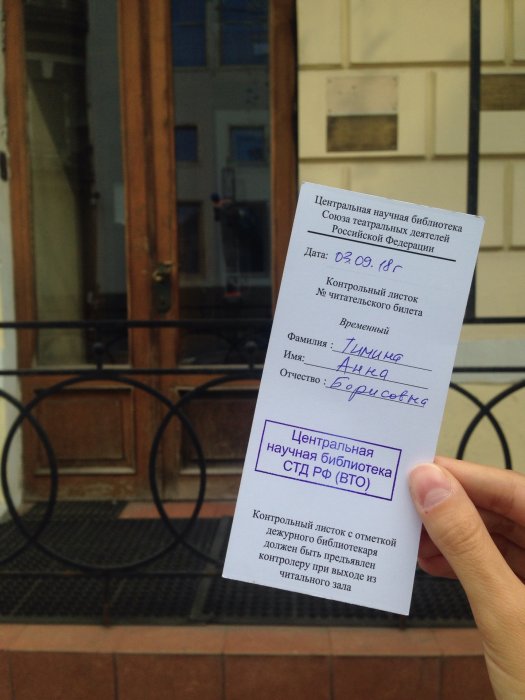 Центральная научная библиотека
Союза театральных деятелей
Российской Федерации
Дата: 03.09.18г
Контрольный листок
№ читательского билета
Временный
Фамилия : Тимина
Имя: Анна
Отчество : Борисовна
Центральная
научная библиотека
СТД РФ (ВТО)
Контрольный листок с отметкой
дежурного библиотекаря
должен быть предъявлен
контролеру при выходе из
читального зала